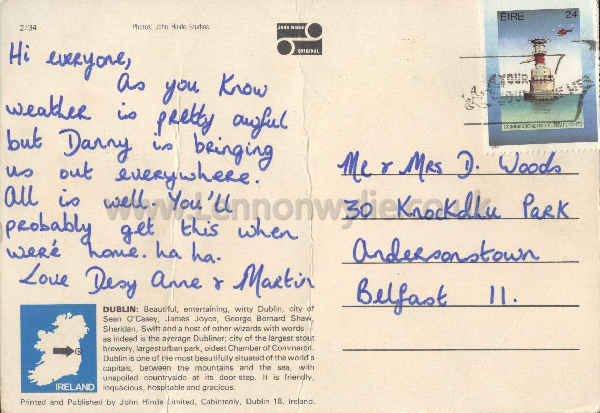 2/34
Photos: John Hinde Studios
JOHN HINDE
ORIGINAL
EIRE 24
YOUR
COMMISSIONERS OF IRISH LIGHTS
Hi everyone,
As you know
weather is pretty awful
but Danny is bringing
us out everywhere.
All is well. You'll
probably get this when
we're home. ha ha.
Love Desy Anne & Martin
Mr & Mrs D. Woods
30 Knockdhu Park
Andersonstown
Belfast 11.
www.Lennonwylie.co.uk
DUBLIN: Beautiful, entertaining, witty Dublin, city of
Sean O'Casey, James Joyce, George Bernard Shaw,
Sheridan, Swift and a host of other wizards with words
as indeed is the average Dubliner; city of the largest stout
brewery, largest urban park, oldest Chamber of Commerce.
Dublin is one of the most beautifully situated of the world's
capitals, between the mountains and the sea, with
unspoiled countryside at its door-step. It is friendly,
loquacious, hospitable and gracious.
IRELAND
Printed and Published by John Hinde Limited, Cabinteely, Dublin 18, Ireland.